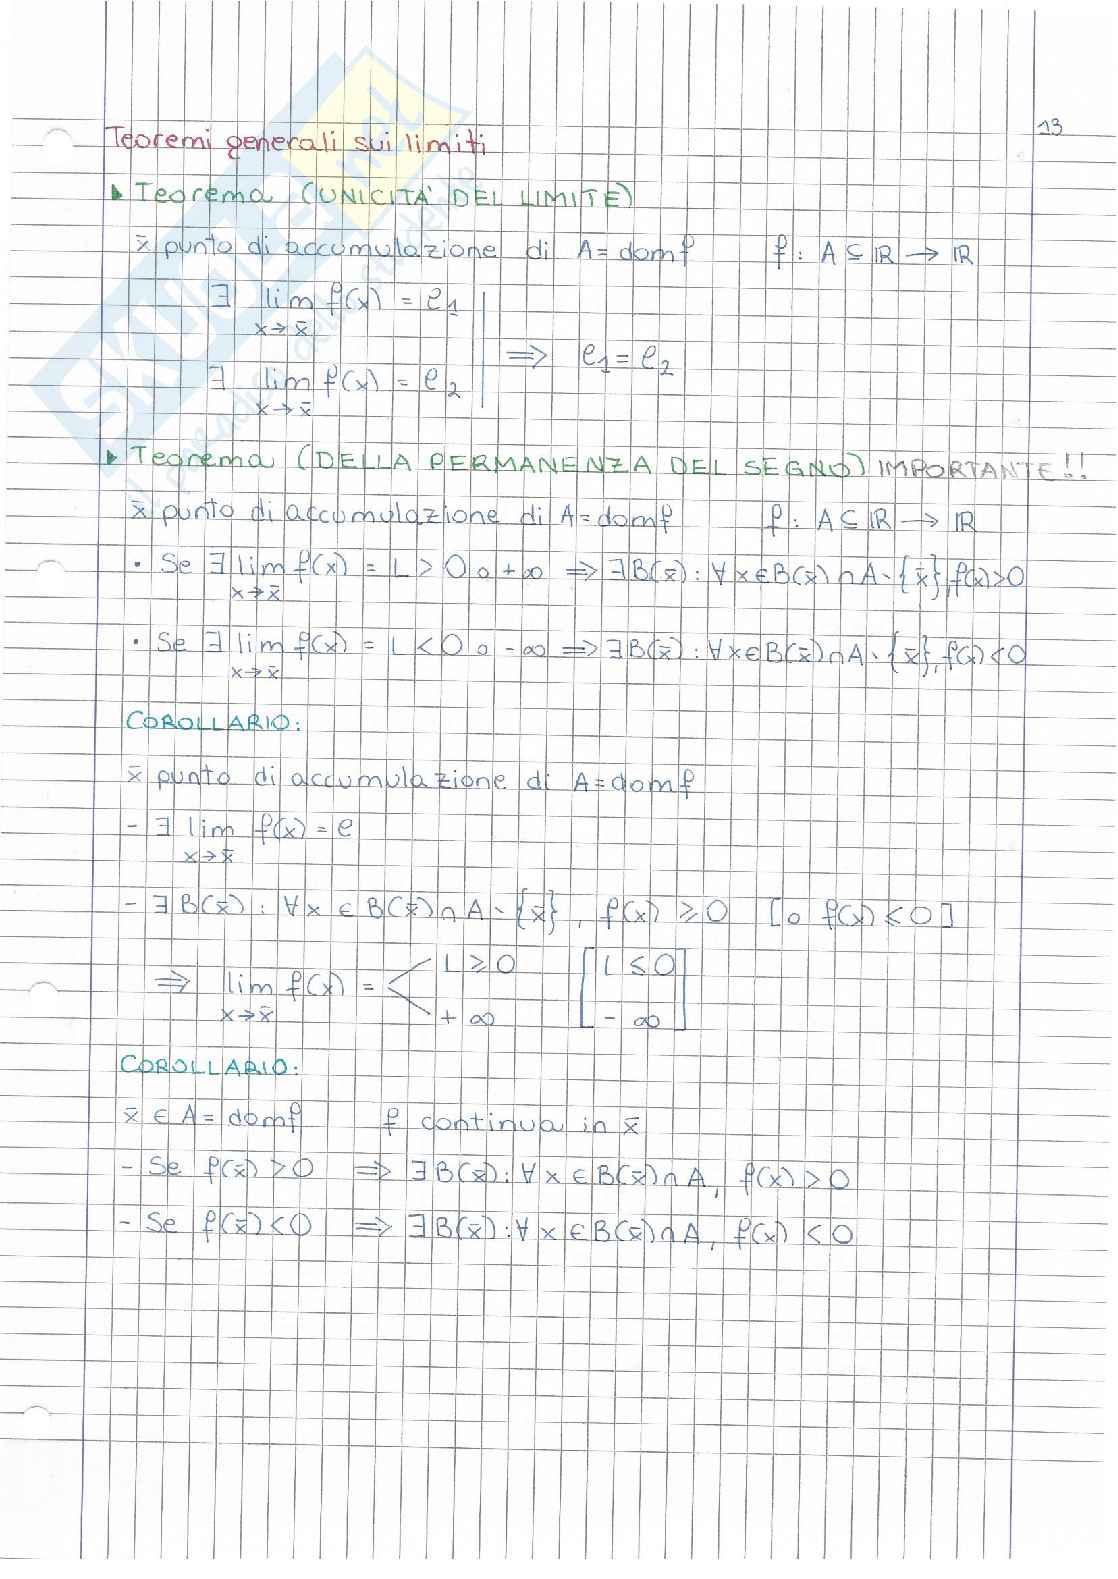 13
Teoremi generali sui limiti
▸ Teorema (UNICITA' DEL LIMITE)
x̄ punto di accumulazione di A = domf f: A ⊆ ℝ → ℝ
∃ lim f(x) = ℓ₁
x→x̄
⟹ ℓ₁ = ℓ₂
∃ lim f(x) = ℓ₂
x→x̄
▸ Teorema (DELLA PERMANENZA DEL SEGNO) IMPORTANTE!!
x̄ punto di accumulazione di A = domf f: A ⊆ ℝ → ℝ
• Se ∃ lim f(x) = L > 0 o +∞ ⟹ ∃ B(x̄): ∀ x ∈ B(x̄) ∩ A \ {x̄}, f(x) > 0
x→x̄
• Se ∃ lim f(x) = L < 0 o -∞ ⟹ ∃ B(x̄): ∀ x ∈ B(x̄) ∩ A \ {x̄}, f(x) < 0
x→x̄
COROLLARIO:
x̄ punto di accumulazione di A = domf
- ∃ lim f(x) = ℓ
x→x̄
- ∃ B(x̄): ∀ x ∈ B(x̄) ∩ A \ {x̄}, f(x) ⩾ 0 [o f(x) ⩽ 0]
L ⩾ 0 [L ≤ 0
⟹ lim f(x) = <
x→x̄ + ∞ - ∞]
COROLLARIO:
x̄ ∈ A = domf f continua in x̄
- Se f(x̄) > 0 ⟹ ∃ B(x̄): ∀ x ∈ B(x̄) ∩ A, f(x) > 0
- Se f(x̄) < 0 ⟹ ∃ B(x̄): ∀ x ∈ B(x̄) ∩ A, f(x) < 0